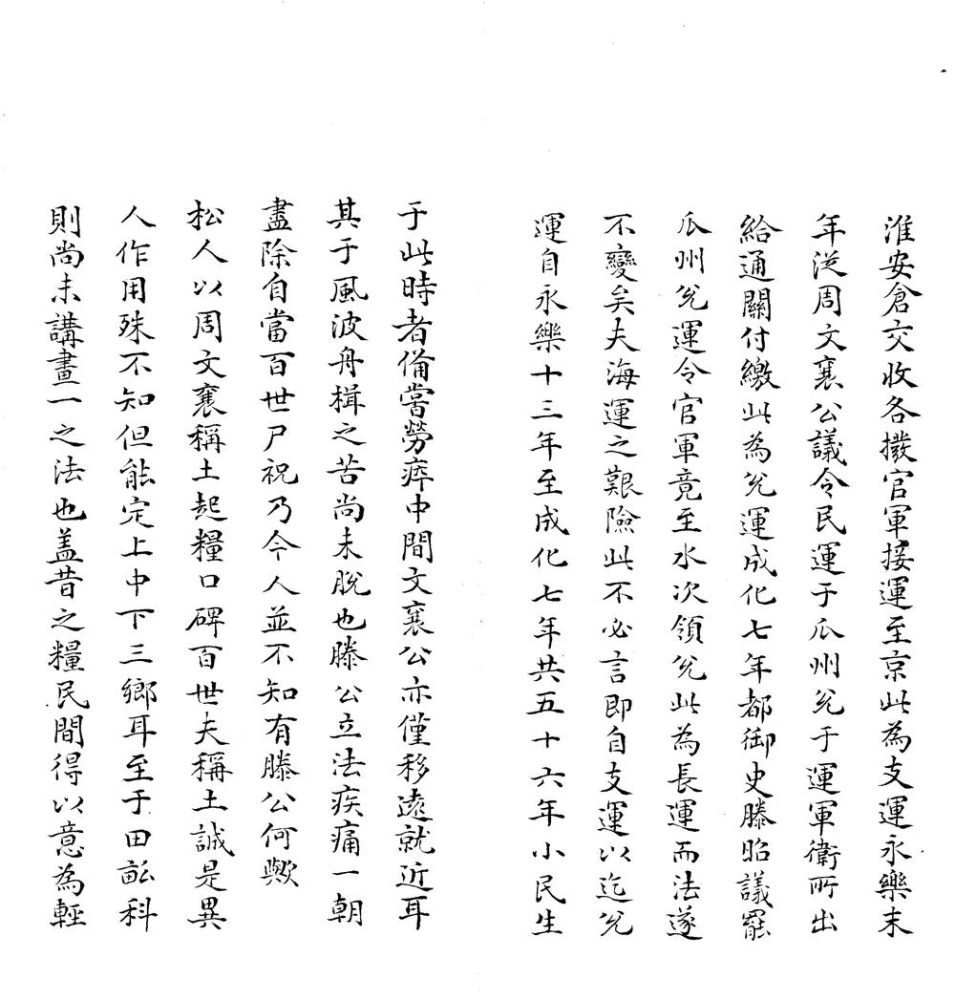 淮安倉交收各撥官軍接運至京此為支運永樂末
年從周文襄公議令民運于瓜州兌于運軍衛所出
給通關付繳此為兌運成化七年都御史滕昭議罷
瓜州兌運令官軍竟至水次領兌此為長運而法遂
不變矣夫海運之艱險此不必言即自支運以迄兌
運自永樂十三年至成化七年共五十六年小民生
于此時者俻嘗勞瘁中間文襄公亦僅移遠就近耳
其于風波舟楫之苦尚未脫也滕公立法疾痛一朝
盡除自當百世尸祝乃今人並不知有滕公何歟
松人以周文襄稱土起糧口碑百世夫稱土誠是異
人作用殊不知但能定上中下三鄉耳至于田畝科
則尚未講畫一之法也盖昔之糧民間得以意為輕